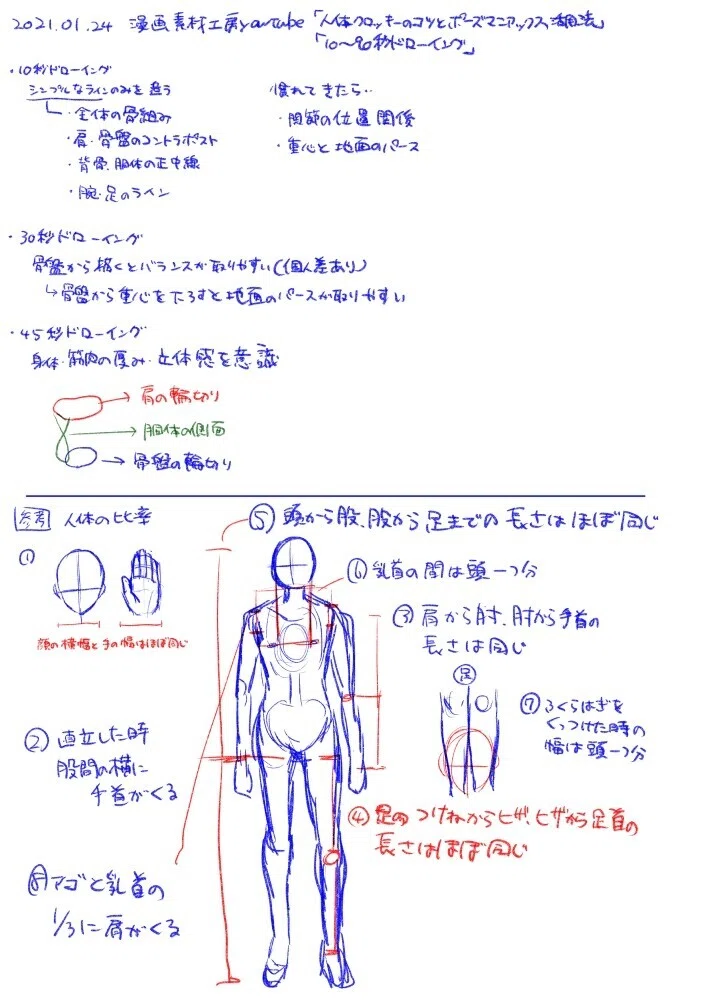 2021.01.24 漫画素材工房youtube「人体クロッキーのコツとポーズマニアックス活用法」
「10〜90秒ドローイング」
・10秒ドローイング
シンプルなラインのみを追う
・全体の骨組み
・肩・骨盤のコントラポスト
・背骨、胴体の正中線
・腕・足のライン
慣れてきたら…
・関節の位置関係
・重心と地面のパース
・30秒ドローイング
骨盤から描くとバランスが取りやすい(個人差あり)
↳骨盤から重心を下ろすと地面のパースが取りやすい
・45秒ドローイング
身体・筋肉の厚み・立体感を意識
→肩の輪切り
→胴体の側面
→骨盤の輪切り
参考 人体の比率
①
顔の横幅と手の幅はほぼ同じ
⑤頭から股、股から足までの長さはほぼ同じ
⑥乳首の間は頭一つ分
③肩から肘、肘から手首の
長さは同じ
足
⑦ふくらはぎを
くっつけた時の
幅は頭一つ分
②直立した時
股間の横に
手首がくる
④足のつけねからヒザ、ヒザから足首の
長さはほぼ同じ
⑧アゴと乳首の
1/3に肩がくる